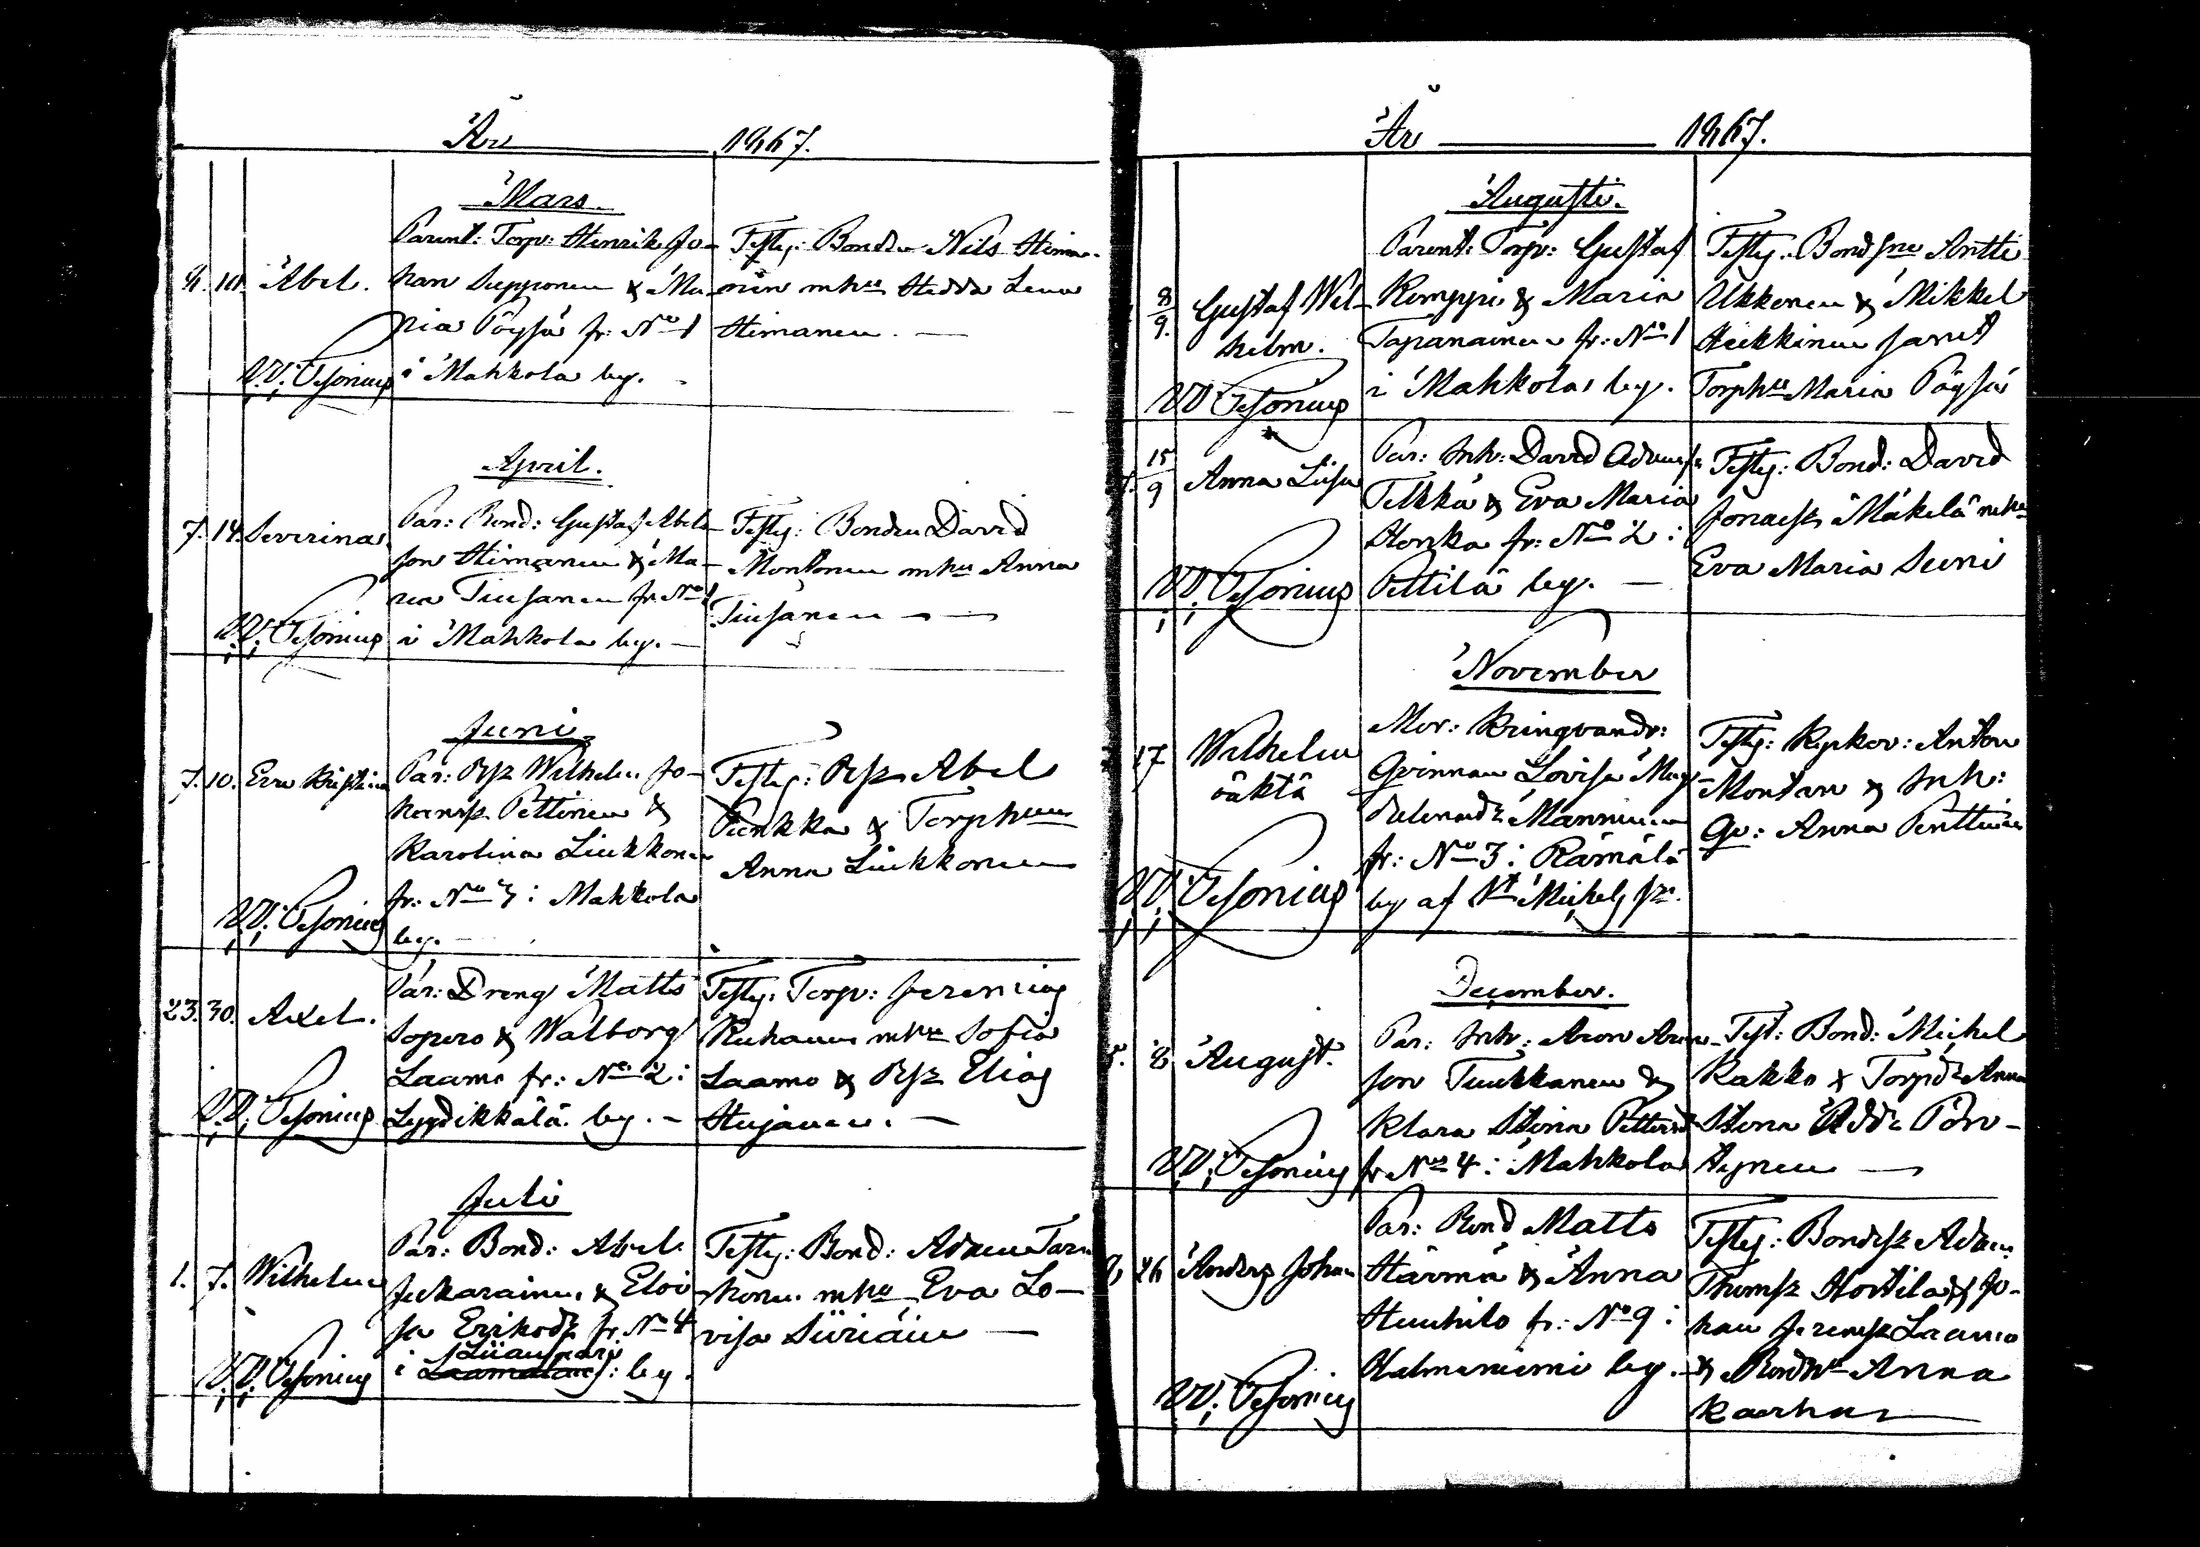 År 1867.
Mars.
8. 10. Abel.
Parent: Torp: Henrik Jo-
han Sepponen & Ma-
ria Pöysä fr: No 1
i Mahkola by.
Testes: Bonden Nils Hima-
nen mhu Hedda Lena
Himanen. —
V.V. Pesonius
April.
7. 14. Severina
Par: Bond: Gustaf Abels-
son Himanen & Ma-
ria Tiusanen fr. No 1
i Mahkola by. —
Testes: Bonden David
Montonen mhu Anna
Tiusanen —
V.V. Pesonius
Juni
7. 10. Eva Kristina
Par: Wilhelm Jo-
hansson Pettinen &
Karolina Liukkonen
fr: No 3 i Mahkola
by. —
Testes: Abel
Punkka & Torphun
Anna Liukkonen
V.V. Pesonius
23. 30. Axel.
Par: Dreng Matts
Sopero & Walborg
Laamo fr: No 2 i
Lyydikkälä by. —
Testes: Torp: Jeremias
Ruhanen mhu Sofia
Laamo & Elias
Hujanen. —
V.V. Pesonius
Juli
1. 7. Wilhelm
Par: Bond: Abel
Jukarainen & Elvi-
sa Eriksdr fr. No 4
i by.
Testes: Bond: Adam Tars-
konen mhu Eva Lo-
visa Siiriäin —
V.V. Pesonius
År 1867.
Augusti.
8/9. Gustaf Wil-
helm.
Parent: Torp: Gustaf
Kemppi & Maria
Tapanainen fr: No 1
i Mahkola by.
Testes: Bondsne Antti
Ukkonen & Mikkel
Heikkinen samt
Torphu Maria Pöysä
V.V. Pesonius
15/9 Anna Liisa
Par: Inh: David Adamss
Telkkä & Eva Maria
Honka fr: No 2 i
Pettilä by. —
Testes: Bond: David
Jonaess Mäkelä mhu
Eva Maria Suni
V.V. Pesonius
November
17 Wilhelm
oäkta
Mor: Kringvandr:
Qvinnan Lovisa Mag-
delenadr Manninen
fr: No 3 i Rämälä
by af St Michels sn.
Testes: Kyrkov: Anton
Montan & Inh:
Qv: Anna Penttinen
V.V. Pesonius
December.
5. 8 August.
Par: Inh: Aron Aron-
son Tuukkanen &
Klara Stina Pettersdr
fr No 4 i Mahkola
Test: Bond: Michel
Kakko & Torpdr Anna
Stina Pär-
V.V. Pesonius
8 26 Anders Johan
Par: Bond Matts
Härmä & Anna
Huuhilo fr: No 9 i
Halmeniemi by. —
Testes: Bondess Adam
Thomss Hortila & Jo-
han Jeremss Laamo
& Bondhu Anna
Kaerha —
V.V. Pesonius